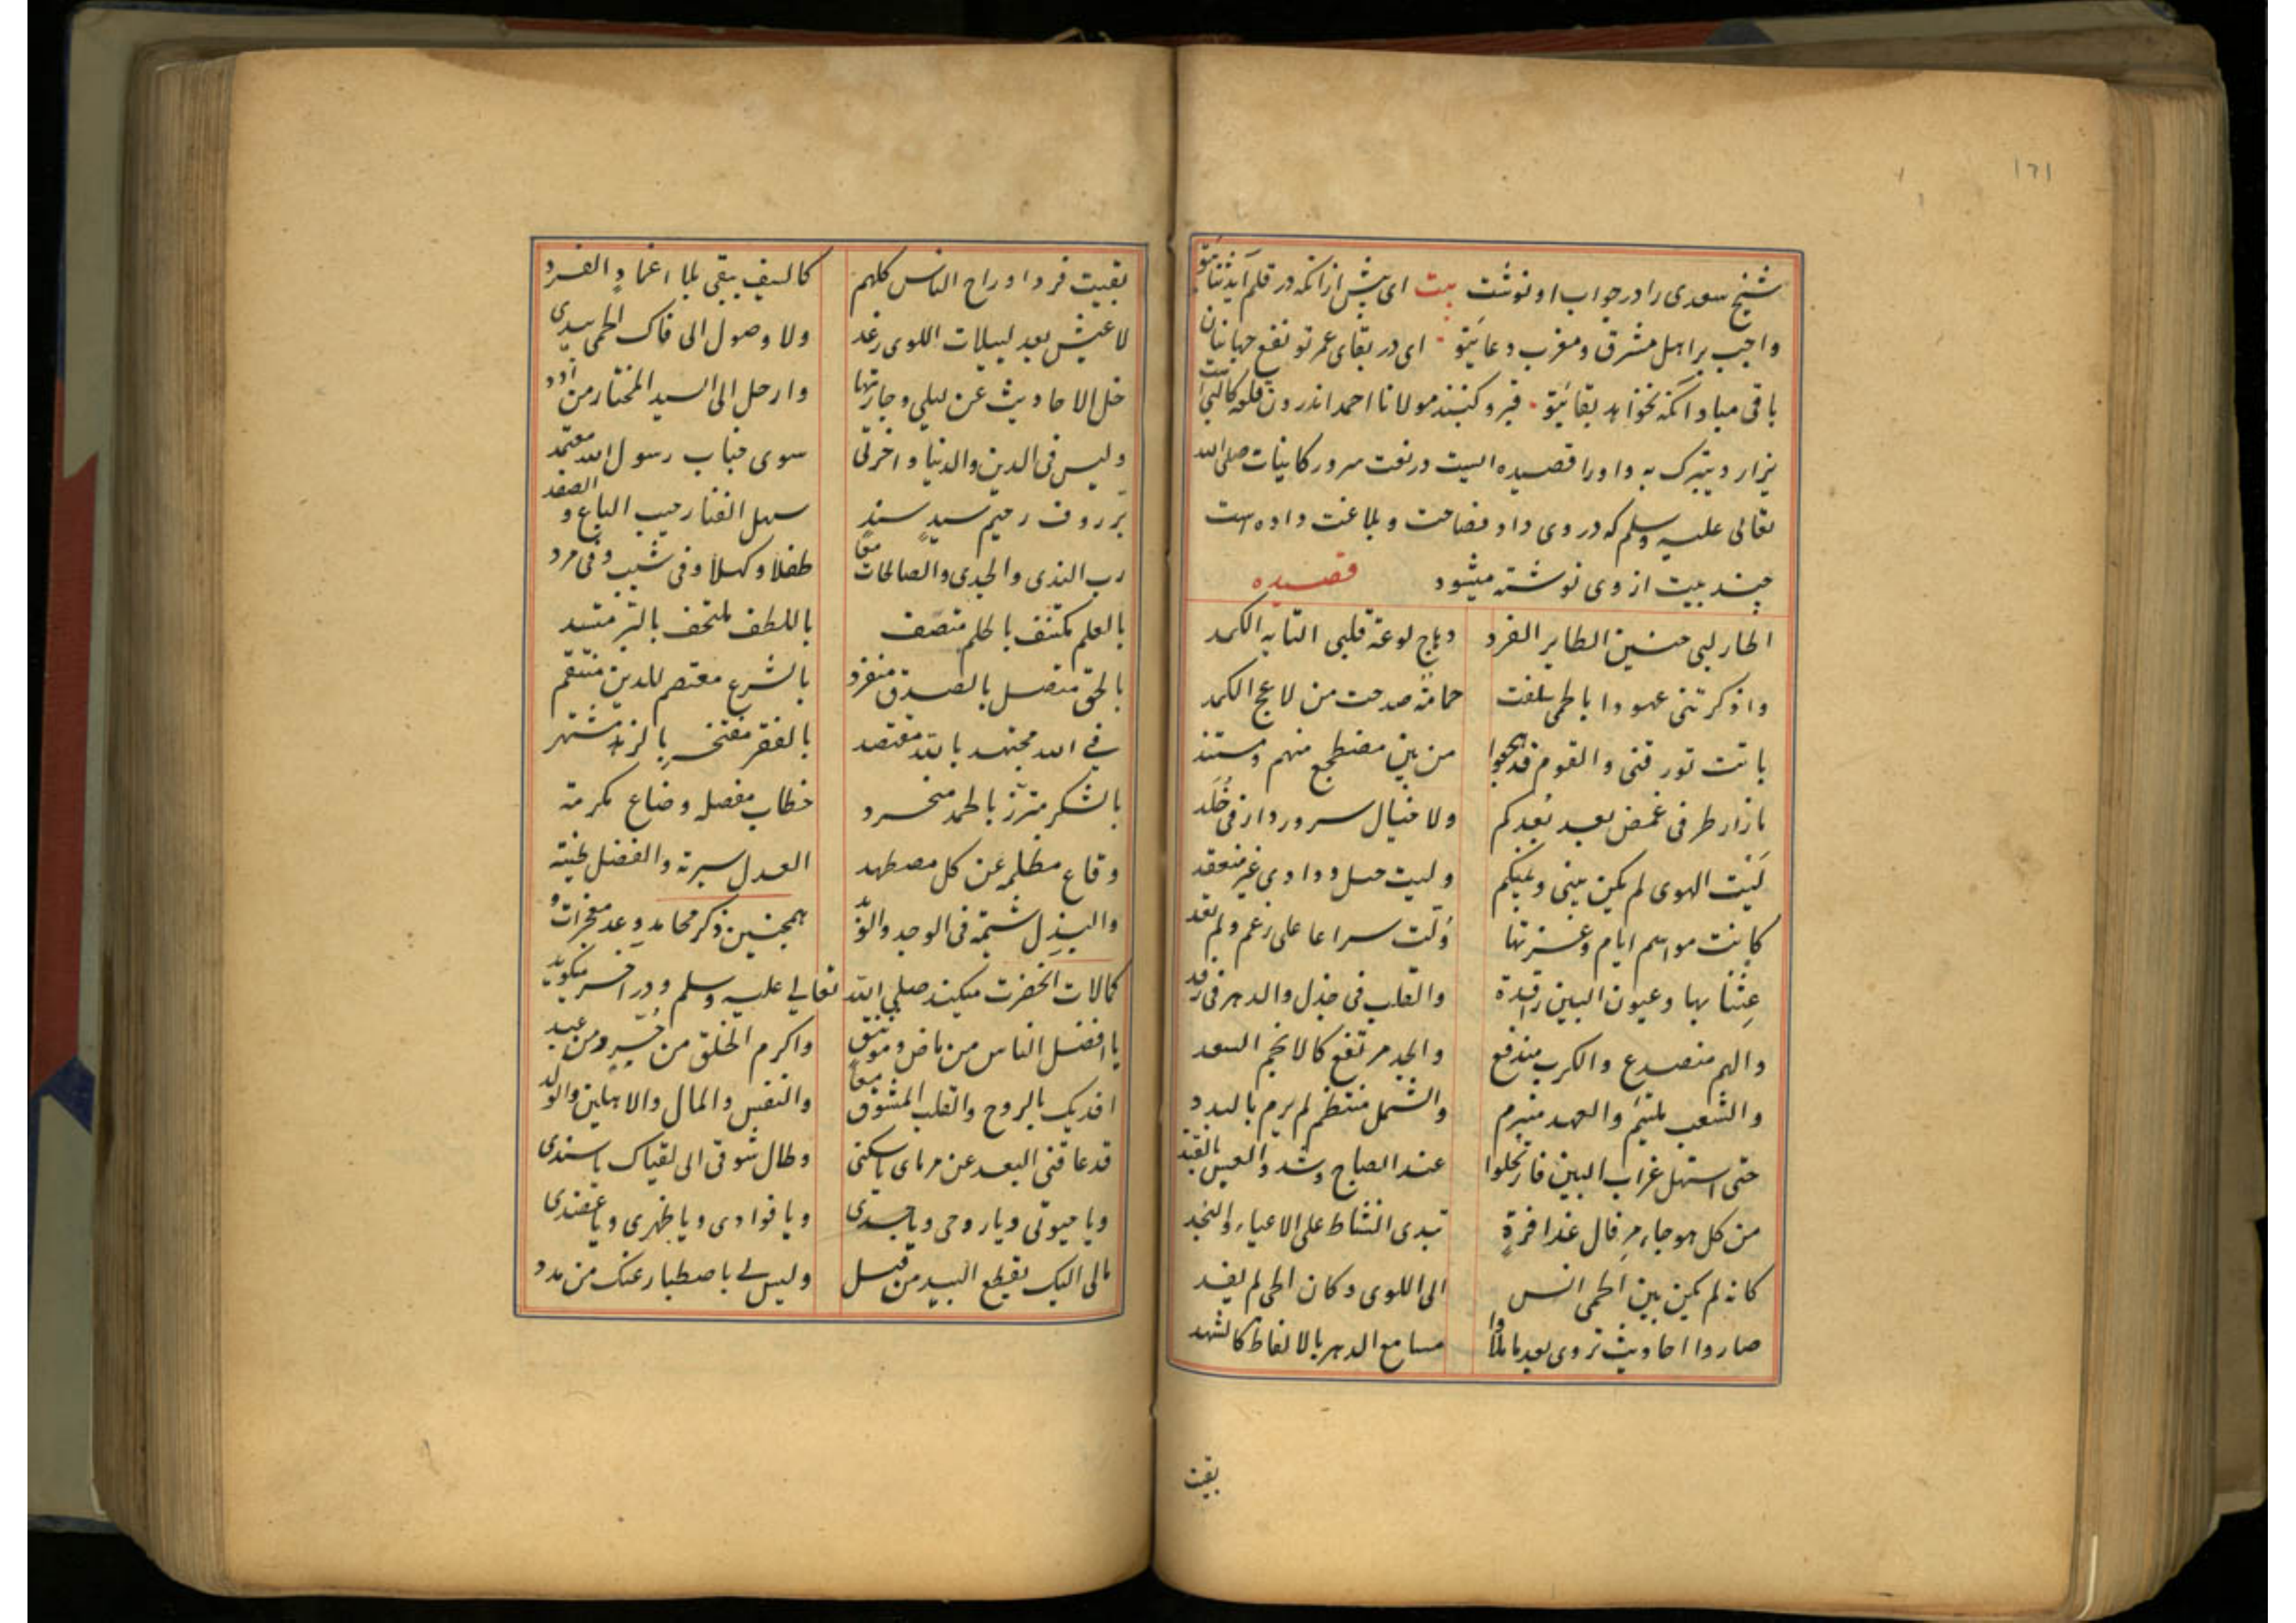 ۱۶۱
شیخ سعدی را در جواب او نوشت بیت ای پیش از انکه در قلم آید ثنایتو
واجب بر اهل مشرق و مغرب دعایتو ای در بقای عمر تو نفع جهانیان
باقی مباد انکه نخواهد بقایتو قبر وی کنند مولانا احمد اندرون قلعه کالپی است
یزار و یتبرک به و او را قصیده ایست در نعت سرور کاینات صلی الله
تعالی علیه وسلم که در وی داد فصاحت و بلاغت داده است
چند بیت از وی نوشته میشود قصیده
اطار لبی حنین الطایر الغرد وهاج لوعة قلبی التایه الکمد
واذکرتنی عهودا بالحمی سلفت حمامة صدحت من لاعج الکمد
باتت تورقنی والقوم قد هجعوا من بین مضطجع منهم ومستند
مازار طرفی غمض بعد بعدکم ولا خیال سرور دار فی خلد
لیت الهوی لم یکن بینی وبینکم ولیت حبل ودادی غیر منعقد
کانت مواسم ایام وغرتها ولت سراعا علی رغم ولم تعد
عشنا بها وعیون البین راقدة والقلب فی جذل والدهر فی رقد
والهم منصدع والکرب مندفع والجد مرتفع کالانجم السعد
والشعب ملتئم والعهد منبرم والشمل منتظم لم یرم بالبدد
حتی استهل غراب البین فارتحلوا عند الصباح وشد والعیس بالقتد
من کل هوجاء مرقال عذافرة تبدی النشاط علی الاعیاء والنجد
کانه لم یکن بین الحمی انس الی اللوی وکان الحی لم یفد
صاروا احادیث تروی بعد ما ملأوا مسامع الدهر بالالفاظ کالشهد
بقیت
بقیت فردا وراح الناس کلهم کالسیف یبقی بلا اغماد والفرد
لا عیش بعد لییلات اللوی رغد ولا وصول الی ذاک الحمی بیدی
خل الاحادیث عن لیلی وجارتها وارحل الی السید المختار من ادد
ولیس فی الدین والدنیا واخرتی سوی جناب رسول الله معتمد
بر روف رحیم سید سند سهل الفنا رحیب الباع والصفد
رب الندی والجدی والصالحات معا طفلا وکهلا وفی شیب وفی مرد
بالعلم مکتنف بالحلم متصف باللطف ملتحف بالبر متسد
بالحق متصل بالصدق منفرد بالشرع معتصم للدین منتقم
فی الله مجتهد بالله مقتصد بالفقر مفتخر بالزهد مشتهر
بالشکر متزر بالحمد منجرد خطاب مفصلة وضاع مکرمة
وقاع مظلمة عن کل مصطهد العدل سیرته والفضل طینته
والبذل شیمته فی الوجد والوبد همچنین ذکر محامد و عد معجزات و
کمالات آنحضرت میکند صلی الله تعالی علیه وسلم و در آخر میگوید
یا افضل الناس من ماض وموتنق واکرم الخلق من حر ومن عبد
افدیک بالروح والقلب المشوق معا والنفس والمال والاهلین والولد
قد عاقنی البعد عن مرمای یا سکنی وطال شوقی الی لقیاک یا سندی
ویا حیوتی ویا روحی ویا جسدی ویا فوادی ویا ظهری ویا عضدی
مالی الیک بقطع البید من قبل ولیس لی باصطبار عنک من مدد